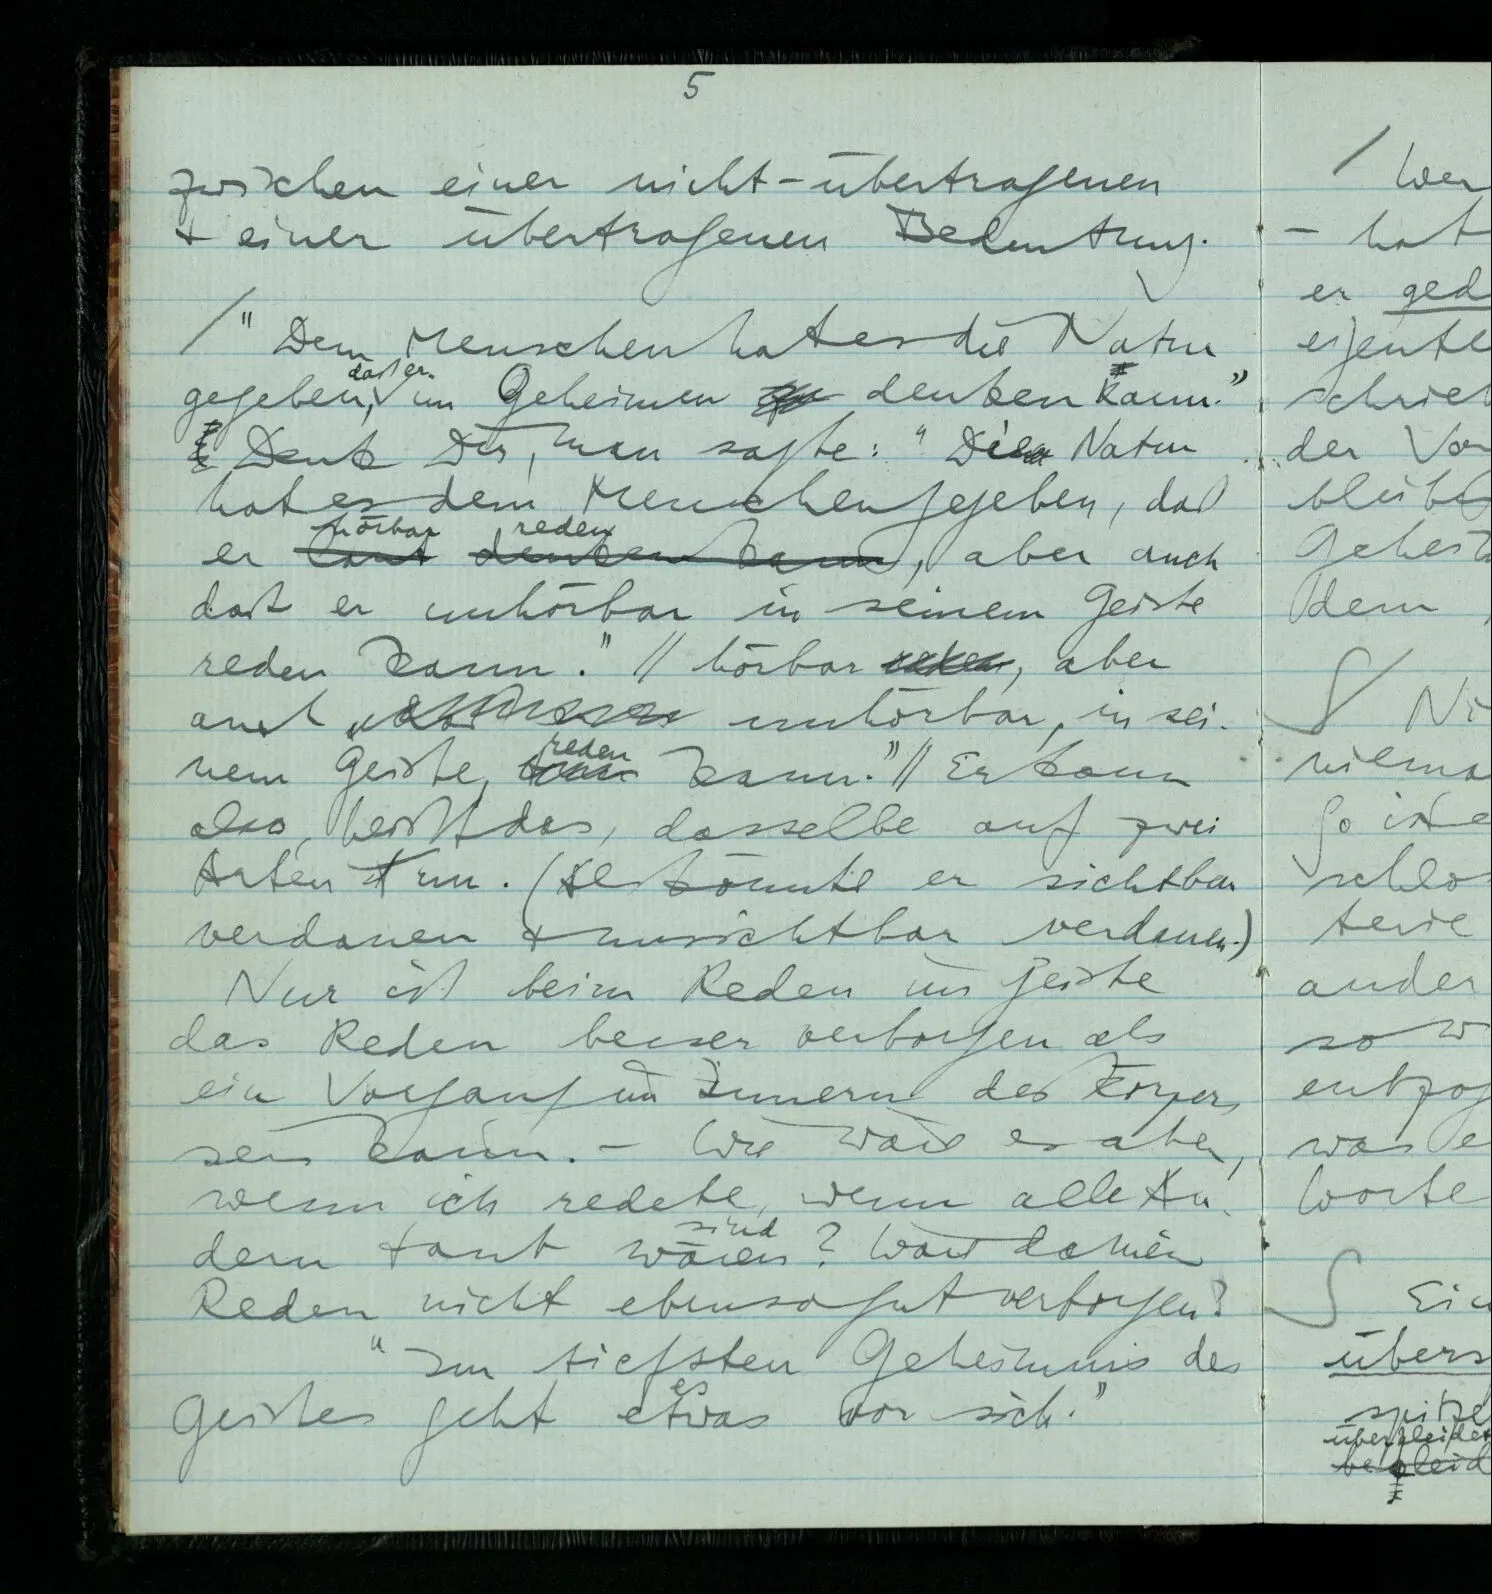 5
zwischen einer nicht-übertragenen
+ einer übertragenen Bedeutung.
/ " Dem Menschen hat es die Natur
daß er
gegeben, im Geheimen zu denken kann."
Denk Dir, man sagte: "Die Natur
hat es dem Menschen gegeben, daß
hörbar reden
er laut denken kann, aber auch
daß er unhörbar in seinem Geiste
reden kann." // hörbar reden, aber
auch unhörbar, in sei-
reden
nem Geiste, kann." // Er kann
also, heißt das, dasselbe auf zwei
Arten tun. (Als könnte er sichtbar
verdauen + unsichtbar verdauen.)
Nur ist beim Reden im Geiste
das Reden besser verborgen als
ein Vorgang im Innern des Körpers
sein kann. – Wie wäre es aber,
wenn ich redete, wenn alle An-
sind
dern taub wären? Wäre da mein
Reden nicht ebenso gut verborgen?
"Im tiefsten Geheimnis des
es
Geistes geht etwas vor sich."
/ Wer
– hat
er ged
eigentl
schrieb
der Vor
bleibt
Geheim
dem
Ni
niema
so ist e
schlos
terie
ander
so w
entzog
was e
Worte
Ein
übers
spitze